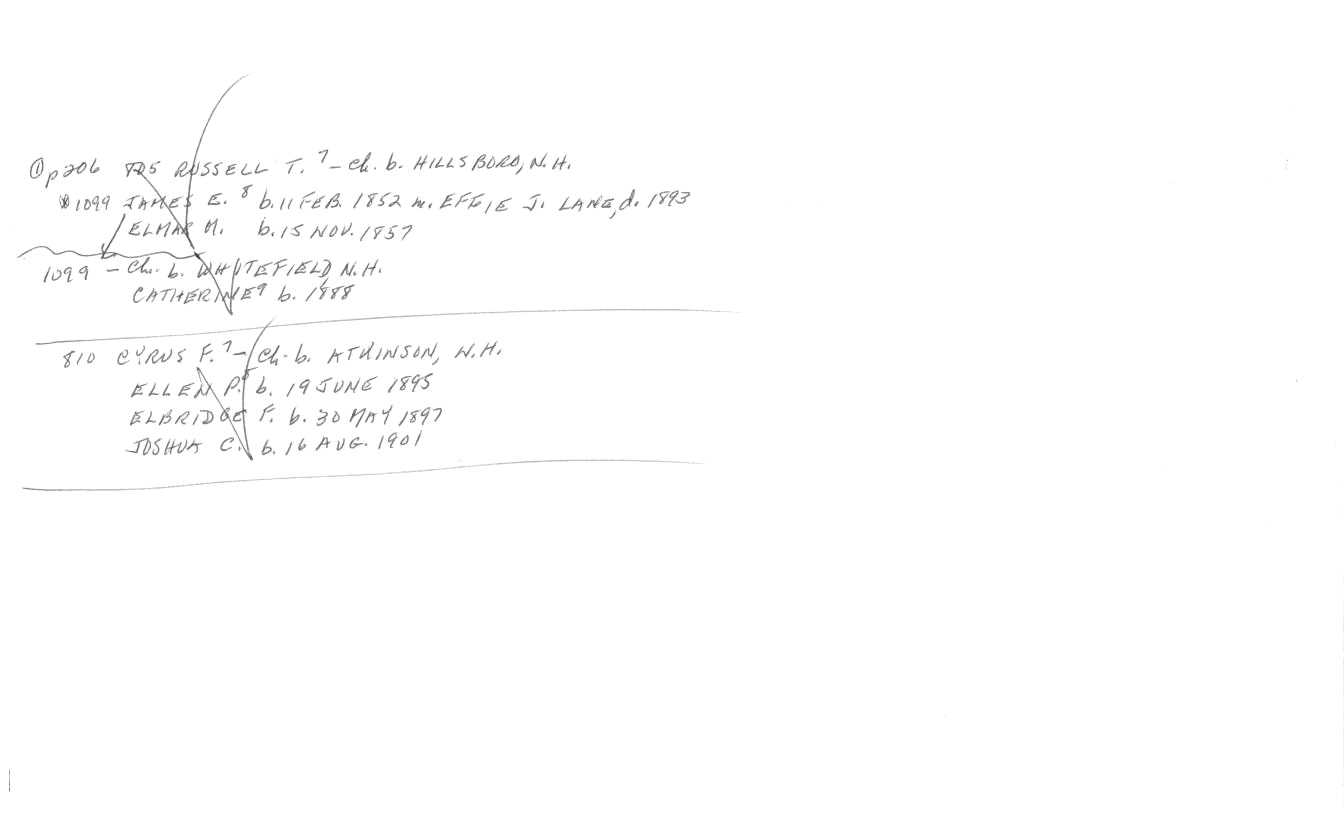 ① p206 785 RUSSELL T.⁷ – ch. b. HILLSBORO, N.H.
1099 JAMES E.⁸ b. 11 FEB. 1852 m. EFFIE J. LANE, d. 1893
ELMAR M. b. 15 NOV. 1857
1099 – Ch. b. WHITEFIELD N.H.
CATHERINE⁹ b. 1888
810 CYRUS F.⁷ – Ch. b. ATKINSON, N.H.
ELLEN P.⁸ b. 19 JUNE 1895
ELBRIDGE F. b. 30 MAY 1897
JOSHUA C. b. 16 AUG. 1901